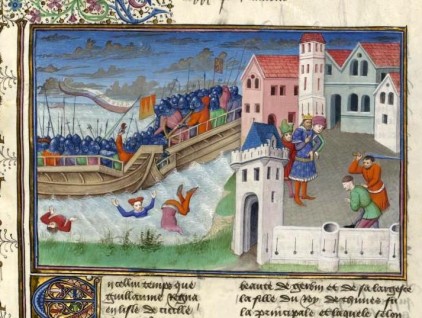 En cellui temps que
guillaume regna
en lisle de cicille
beaute de gerbin et de sa largesse
la fille du Roy de thunes fu
la principale et laquelle selon